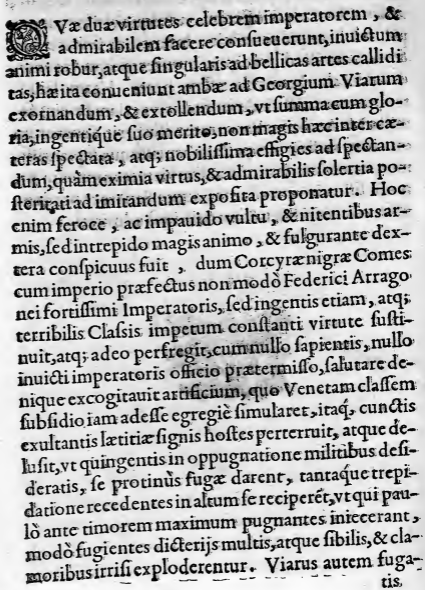 QVæ duæ virtutes celebrem imperatorem, &
admirabilem facere consueuerunt, inuictum
animi robur, atque singularis ad bellicas artes callidi
tas, hæ ita conueniunt ambæ ad Georgium Viarum
exornandum, & extollendum, vt summa cum glo-
ria, ingentiq́ue suo merito, non magis hæc inter cæ-
teras spectata, atq; nobilissima effigies ad spectan-
dum, quàm eximia virtus, & admirabilis solertia po-
steritati ad imitandum exposita proponatur. Hoc
enim feroce, ac impauido vultu, & nitentibus ar-
mis, sed intrepido magis animo, & fulgurante dex-
tera conspicuus fuit, dum Corcyræ nigræ Comes
cum imperio præfectus non modò Federici Arrago
nei fortissimi Imperatoris, sed ingentis etiam, atq;
terribilis Classis impetum constanti virtute susti-
nuit, atq; adeo perfregit, cum nullo sapientis, nullo
inuicti imperatoris officio prætermisso, salutare de-
nique excogitauit artificium, quo Venetam classem
subsidio iam adesse egregiè simularet, itaq́; cunctis
exultantis lætitiæ signis hostes perterruit, atque de-
lusit, vt quingentis in oppugnatione militibus desi-
deratis, se protinùs fugæ darent, tantaq́ue trepi-
datione recedentes in altum se reciperét, vt qui pau-
lò ante timorem maximum pugnantes iniecerant,
modò fugientes dicterijs multis, atque sibilis, & cla-
moribus irrisi exploderentur. Viarus autem fuga-
tis,